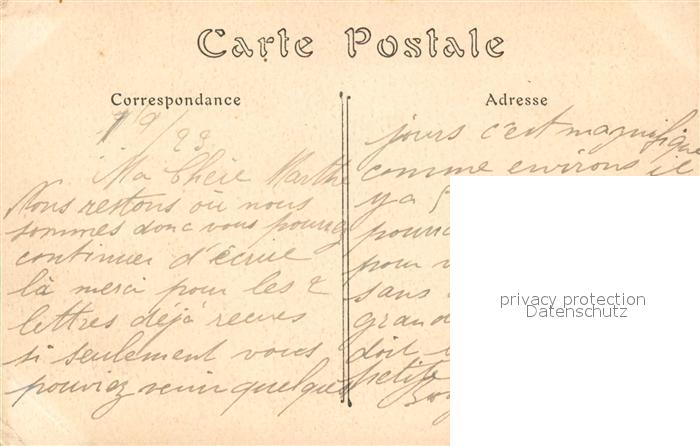 Carte Postale
Correspondance
Adresse
1/9/23
Ma Chère Marthe
Nous restons où nous
sommes donc vous pourrez
continuer d'écrire
là merci pour les 2
lettres déjà recues
si seulement vous
pouviez venir quelques
jours c'est magnifique
comme environs il
y a
pour
sans
grand
doit
petite
privacy protection
Datenschutz